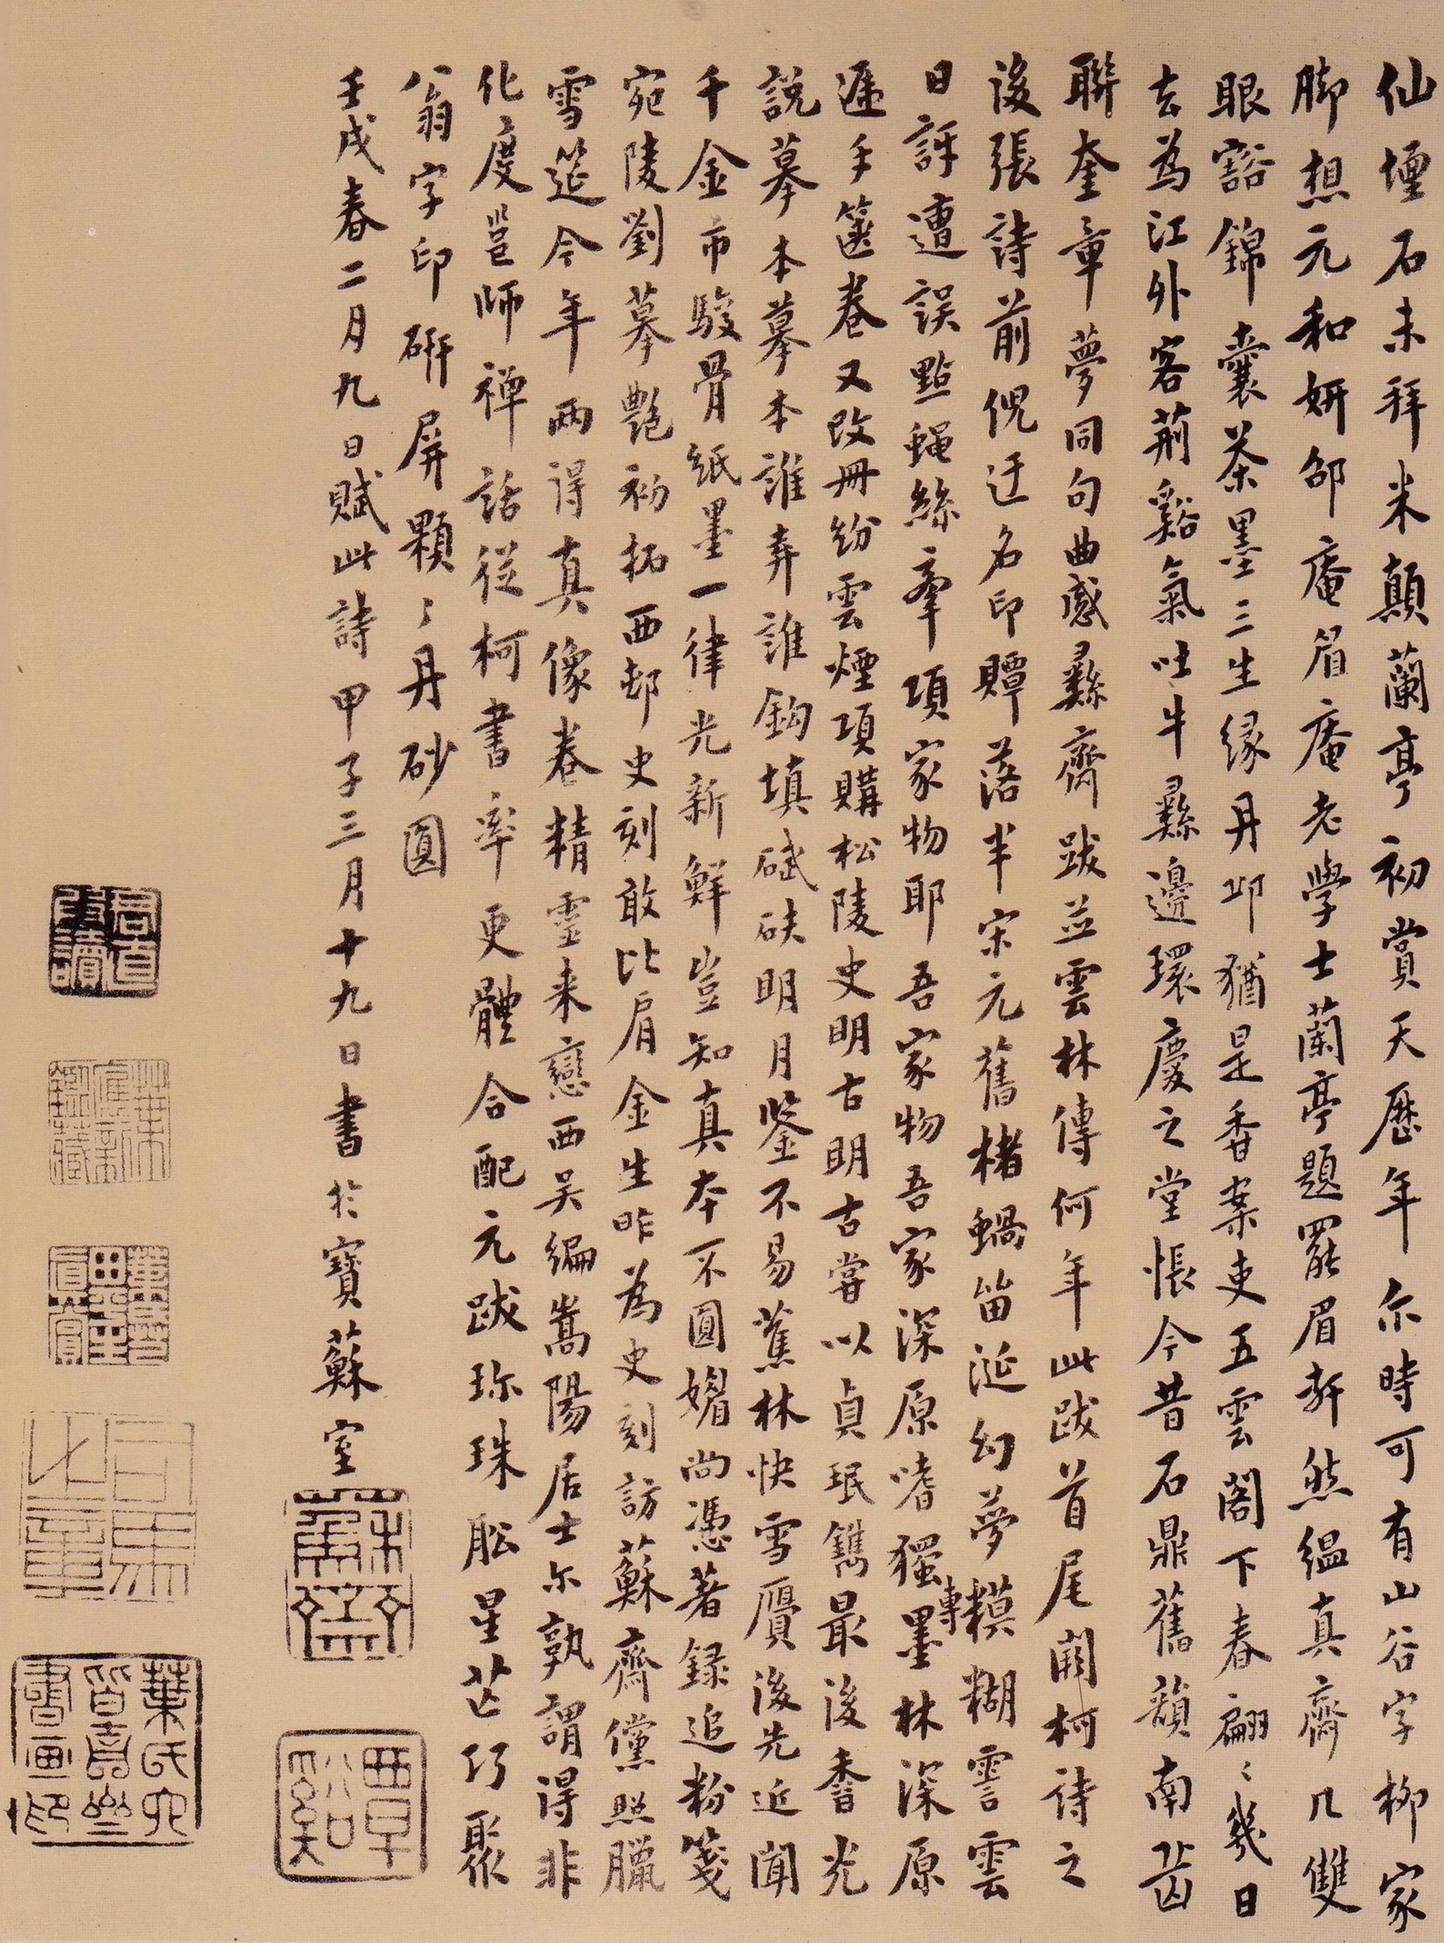 仙壇石未拜米顛蘭亭初賞天曆年尔時可有山谷字柳家
脚想元和妍郃庵眉庵老學士蘭亭題罷眉軒然縕真齋几雙
眼豁錦囊茶墨三生緣丹邱猶是香案吏五雲閣下春翩〻幾日
去為江外客荊谿氣吐牛彝邊環慶之堂悵今昔石鼎舊韻南齒
聯奎章夢同句曲感彝齋跋並雲林傳何年此跋首尾闕柯詩之
後張詩前倪迂名印賸落半宋元舊楮蝸笛涎幻夢模糊雲
日訝遭誤點蠅絲牽項家物耶吾家物吾家深原嗜獨墨林深原
轉
遞手篋卷又改冊紛雲煙項購松陵史明古明古嘗以貞珉鐫最後耆光
說摹本摹本誰弆誰鈎填碔砆明月鑒不易蕉林快雪贗後先近聞
千金市駿骨紙墨一律光新鮮豈知真本不圓媚尚憑著録追粉箋
宛陵劉摹艷初拓西邨史刻敢比肩金生昨為史刻訪蘇齋儻照臘
雪筵今年兩得真像卷精靈来戀西吴編嵩陽居士尔孰謂得非
化度邕師禪話從柯書率更體合配元跋珎珠船星芒巧聚
翁字印硏屏顆〻丹砂圓
壬戌春二月九日賦此詩甲子三月十九日書於寶蘇室
蘇齋
覃谿
葉氏
書畫印